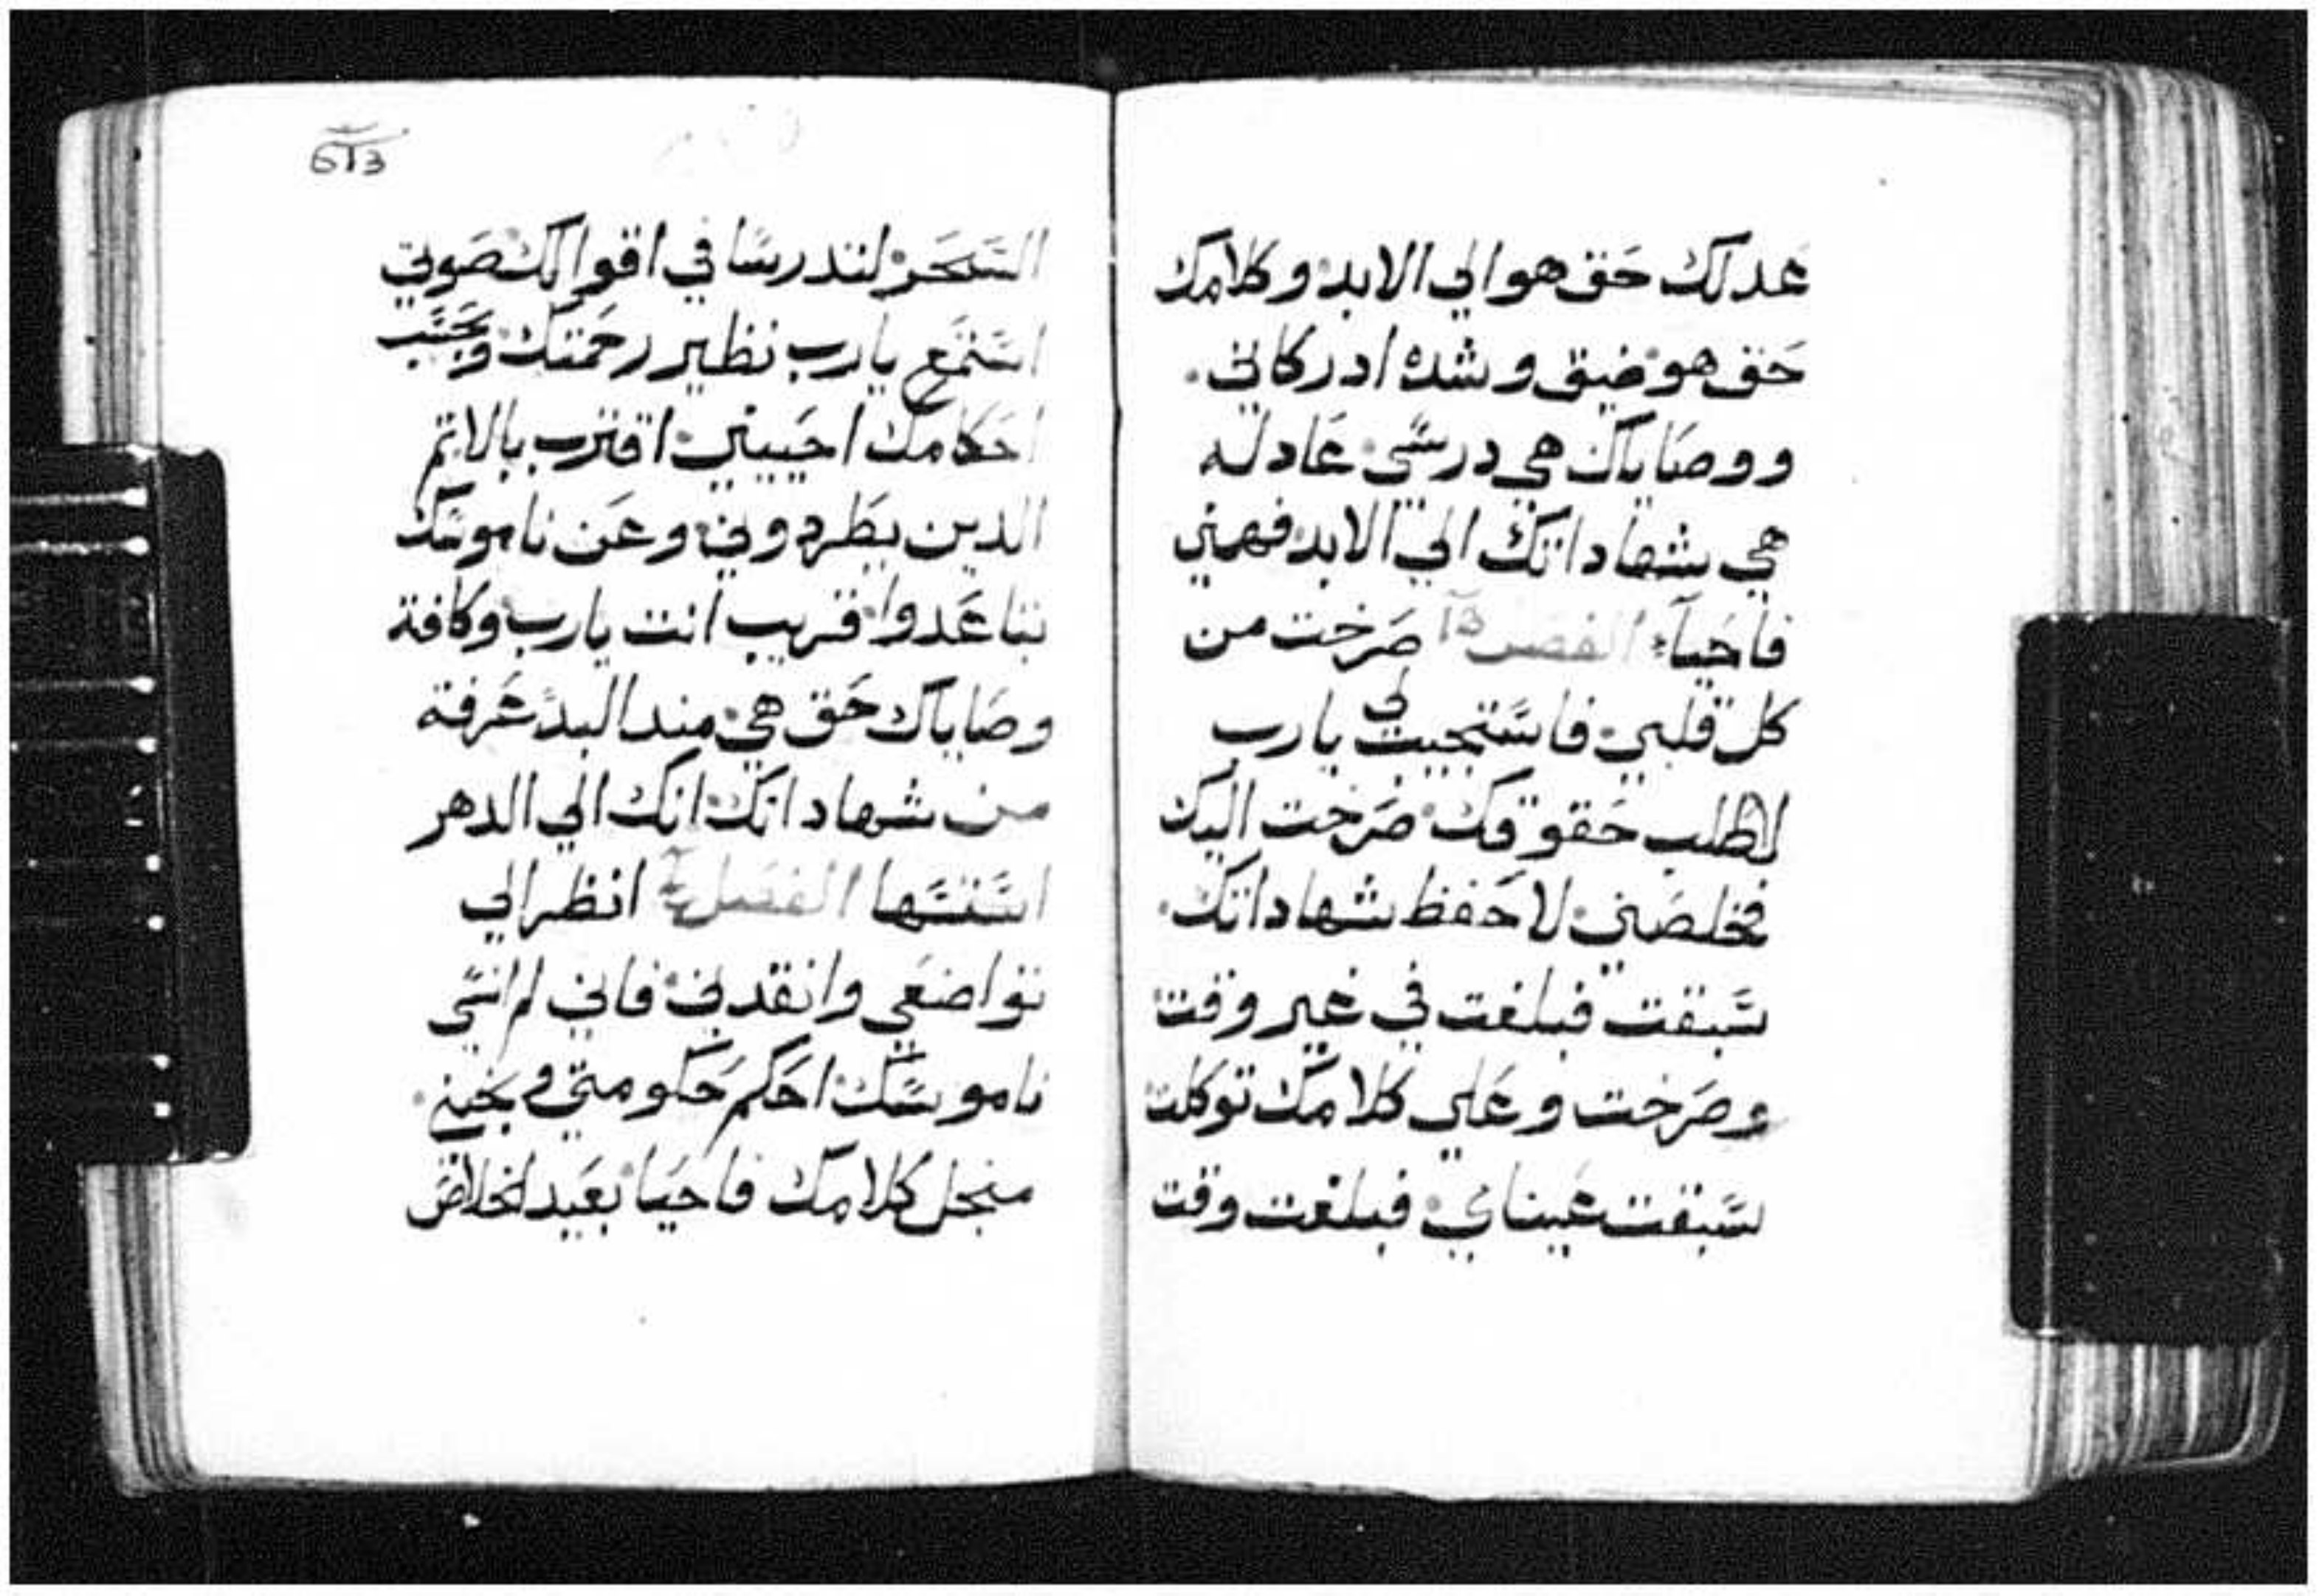 عدلك حق هو الي الابد وكلامك
حق هو ضيق وشده ادركاني
ووصاياك هي درسي عادله
هي شهاداتك الي الابد فهمني
فاحيا الفصل صرخت من
كل قلبي فاستجيب لي يارب
لاطلب حقوقك صرخت اليك
فخلصني لاحفظ شهاداتك
سبقت فبلغت في غير وقت
وصرخت وعلي كلامك توكلت
سبقت عيناي فبلغت وقت
السحر لتدرسا في اقوالك صوتي
استمع يارب نظير رحمتك وبحسب
احكامك احييني اقترب بالاثم
الدين يطردوني وعن ناموسك
تباعدوا قريب انت يارب وكافة
وصاياك حق هي مند البد عرفة
من شهاداتك انك الي الدهر
اسستها الفصل انظر الي
تواضعي وانقدني فاني لم انسي
ناموسك احكم حكومتي ونجيني
منجل كلامك فاحيا بعيد الخلاص